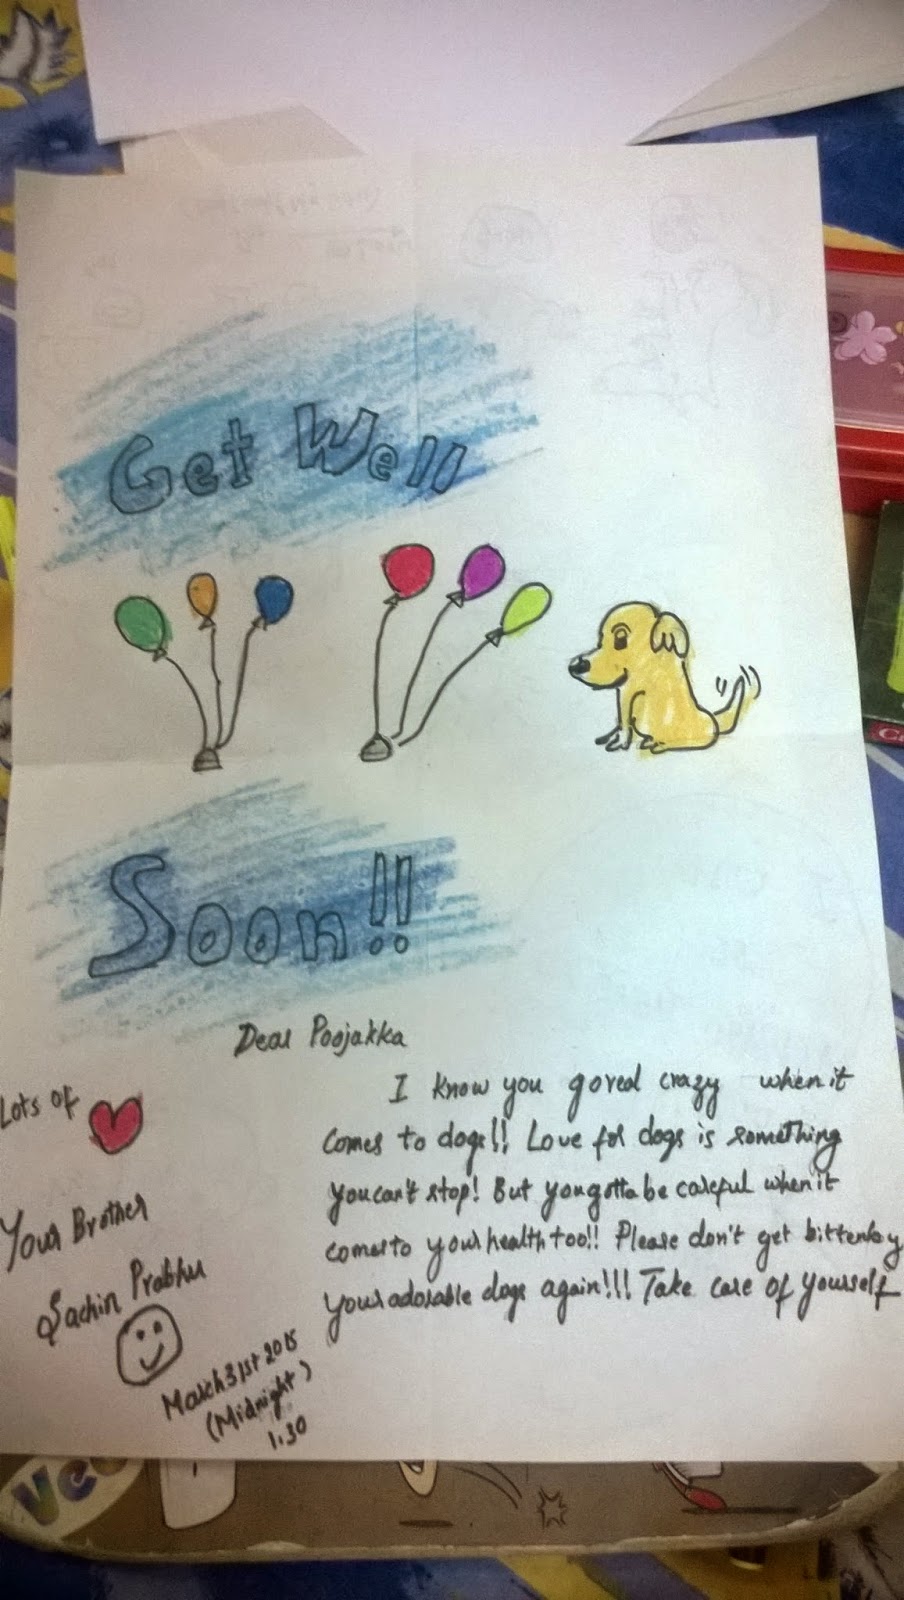 Get Well
Soon!!
Dear Poojakka
I know you go real crazy when it
comes to dogs!! Love for dogs is something
you can't stop! But you gotta be careful when it
comes to your health too!! Please don't get bitten by
your adorable dogs again!!! Take care of yourself
Lots of
Your Brother
Sachin Prabhu
March 31st 2015
(Midnight)
1.30